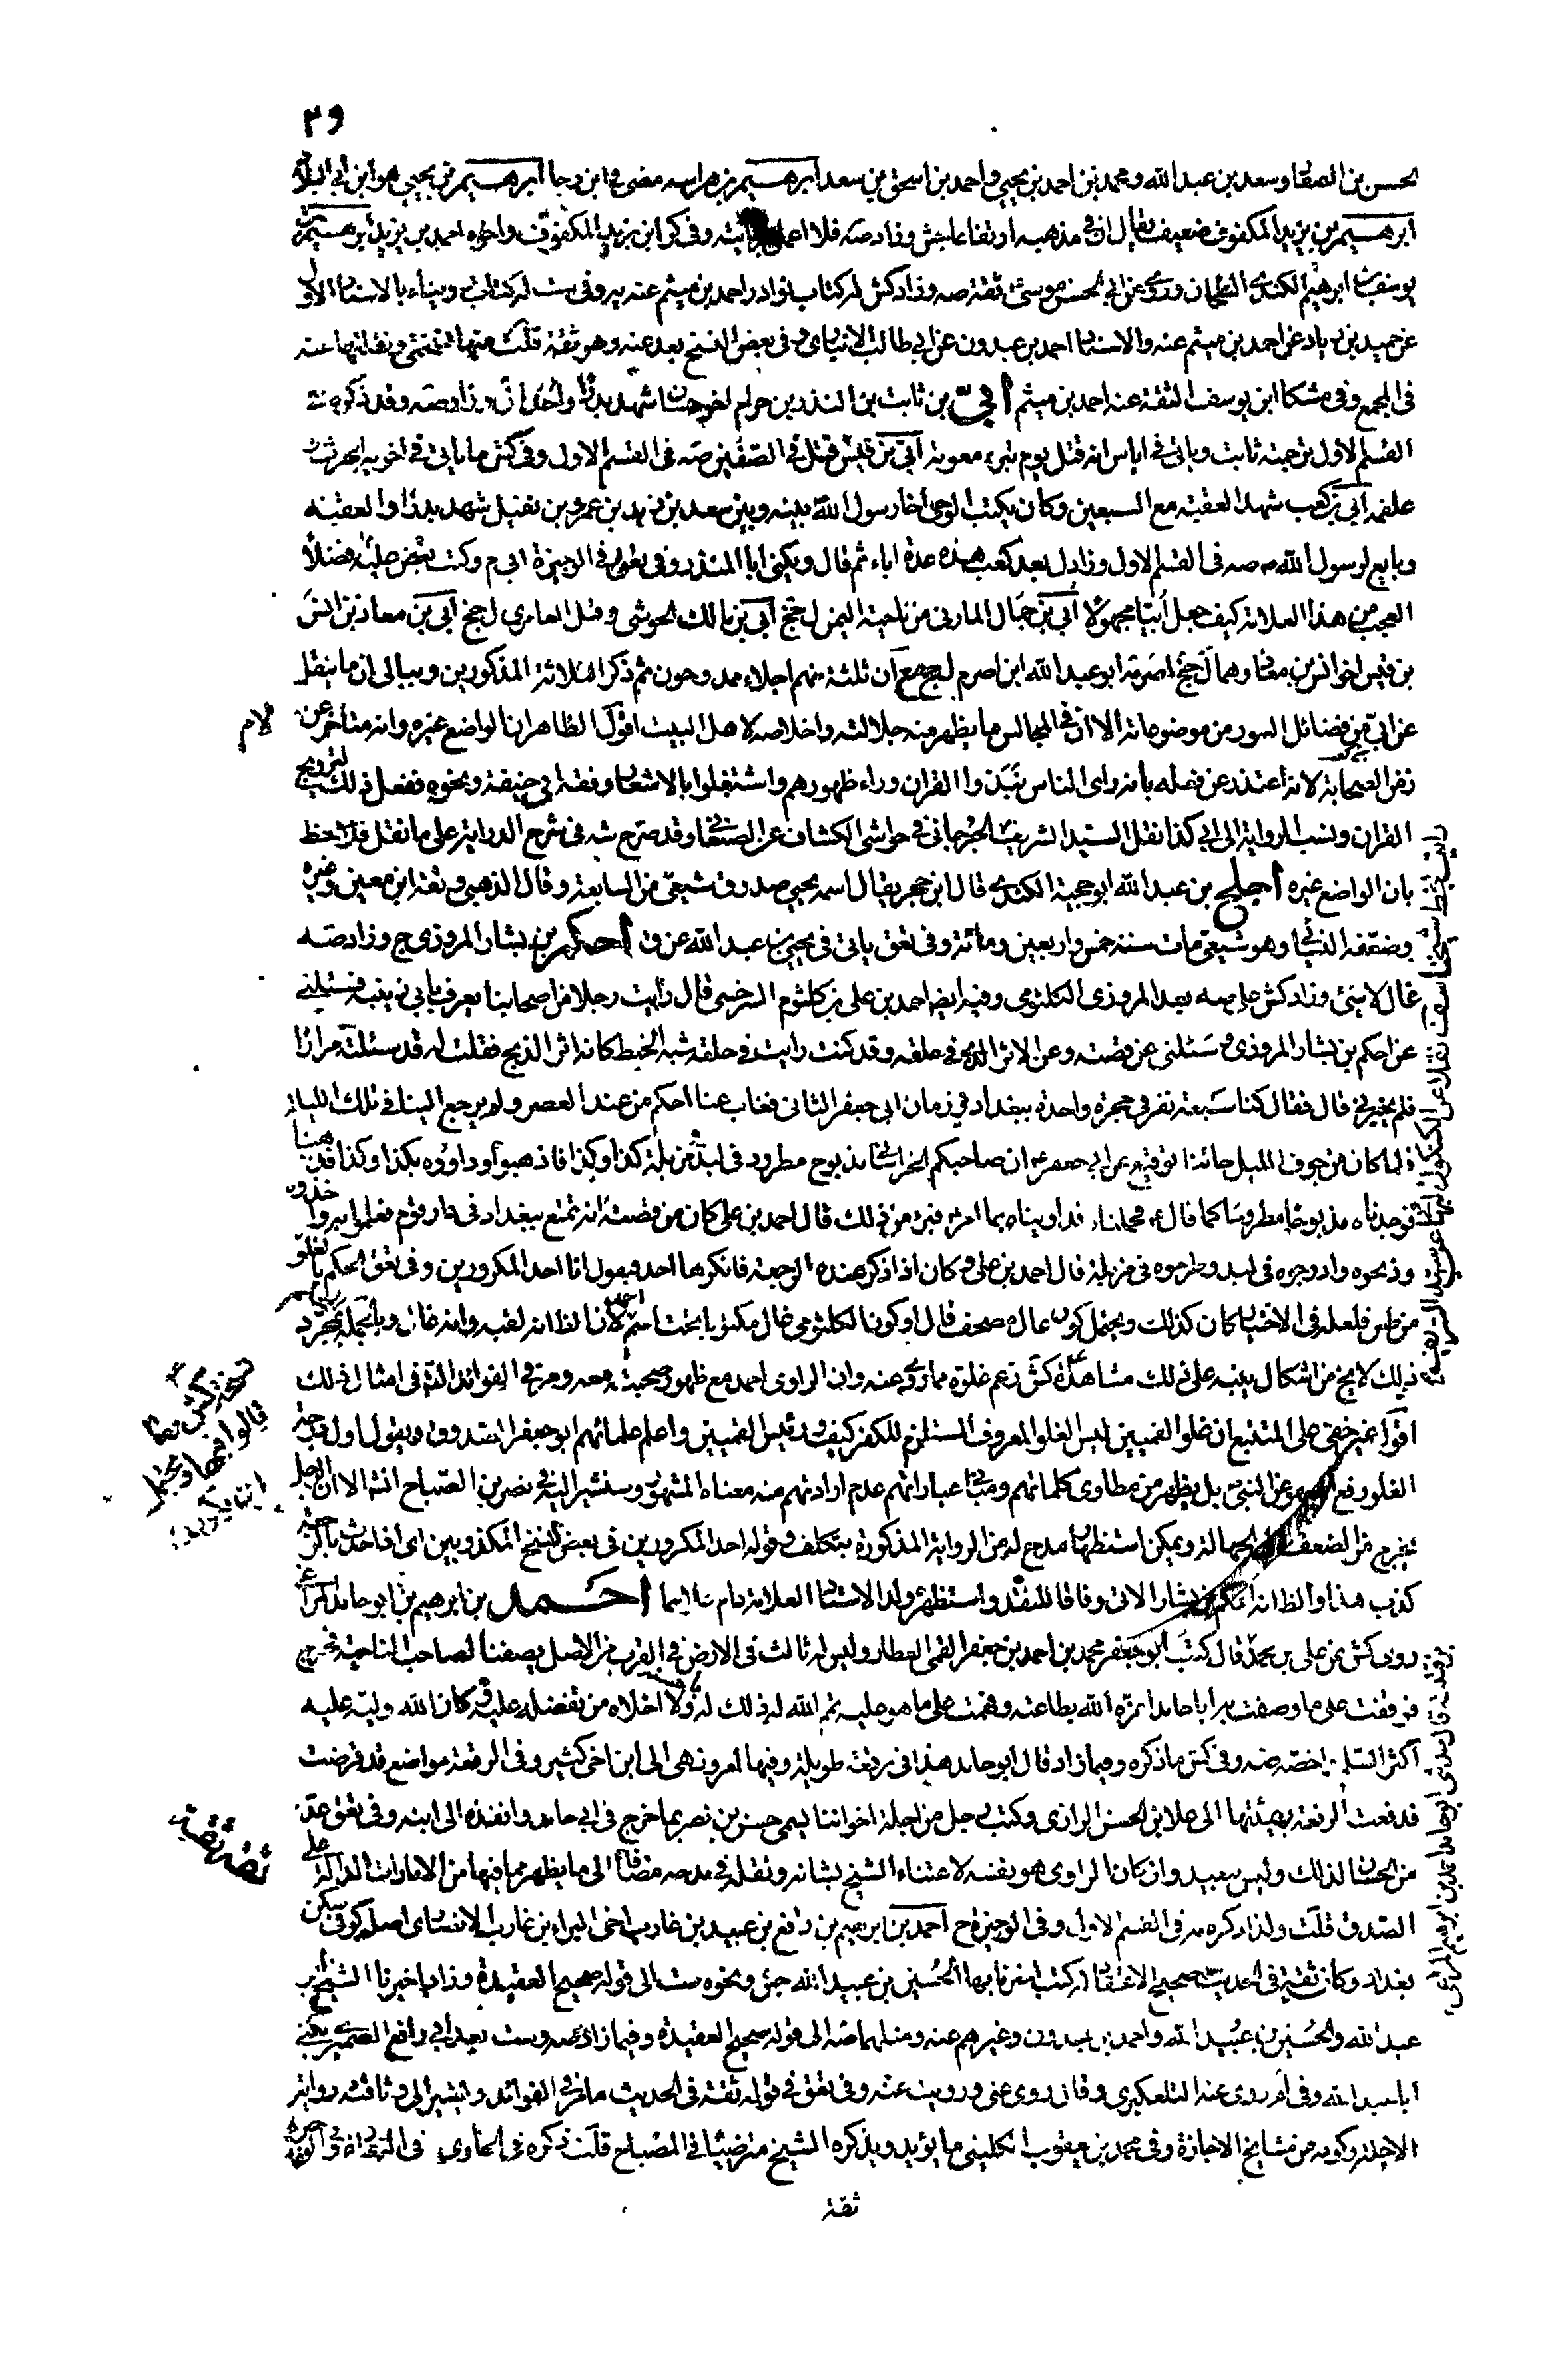 ٣٩
الحسن بن الصفار وسعد بن عبد الله ومحمد بن احمد بن يحيى واحمد بن اسحق بن سعد ابرهيم بن هراسه مضى في ابن رجا ابرهيم بن يحيى هو ابن ابي البلاد
ابرهيم بن يزيد المكفوف ضعيف يقال ان في مذهبه ارتفاعا جش وزاد صه فلا اعمل بروايته وفي كر ابن يزيد المكفوف واخوه احمد بن يزيد ابرهيم بن
يوسف بن ابرهيم الكندي الطحان روى عن ابي الحسن موسى ثقة صه وزاد كش له كتاب نوادر احمد بن ميثم عنه به وفي ست له كتاب رويناه بالاسناد الاول
عن حميد بن زياد عن احمد بن ميثم عنه والاسناد احمد بن عبدون عن ابي طالب الانباري وفي بعض النسخ بعد عنه وهو ثقة قلت
في المجمع وفي مشكا ابن يوسف الثقة عنه احمد بن ميثم ابيّ بن ثابت بن المنذر بن حرام اخو حسان شهد بدرا واحدا ل وزاد صه وقد ذكره في
القسم الاول ترجمة ثابت وياتي في اياس انه قتل يوم بئر معونة ابي بن قيس قتل في الصفين صه في القسم الاول وفي كش ما ياتي في اخويه الحرث و
علقمه ابي بن كعب شهد العقبة مع السبعين وكان يكتب الوحي اخا رسول الله بينه وبين سعد بن زيد بن عمرو بن نفيل شهد بدرا والعقبة
وبايع لرسول الله ص صه في القسم الاول وزاد ل بعد كعب هذه عدة اباء ثم قال ويكنى ابا المنذر وفي تعق في الوجيزة ابي م وكتب بعض جلبه فضلا
العجب من هذا العلامة كيف جعل ابيا مجهولا ابي بن جمال المازني من ناحية اليمن ل جخ ابي بن مالك الحوشي وقيل العامري ل جخ ابي بن معاذ بن انس
بن قيس اخو انس بن معاذ وهما ل جخ اصرمة ابو عبد الله ابن اصرم ل جخ مع ان ثلثة منهم اجلاء ممدوحون ثم ذكر الثلاثة المذكورين وببالي ان ما ينقل
عن ابي من فضائل السور من موضوعاته الا ان في المجالس ما يظهر منه جلالته واخلاصه لاهل البيت اقول الظاهر ان الواضع غيره وانه متاخر عن
زمن الصحابة لانه اعتذر عن فعله بانه راى الناس نبذوا القران وراء ظهورهم واشتغلوا بالاشعار وفقه ابي حنيفة ونحوه ففعل ذلك لترويج
القران ونسب الرواية الى ابي كذا نقل السيد الشريف الجرجاني في حواشي الكشاف عن الصنعاني وقد صرح شه في شرح الدراية على ما نقل فلاحظ
بان الواضع غيره اجلح بن عبد الله ابو حجية الكندي قال ابن حجر يقال اسمه يحيى صدوق شيعي من السابعة وقال الذهبي وثقه ابن معين وغيره
وضعفه النسائي وهو شيعي مات سنة خمس واربعين ومائة وفي تعق ياتي في يحيى بن عبد الله عن ق احكم بن بشار المروزي ج وزاد صه
غال لا شئ وزاد كش ما صه بعد المروزي الكلثومي وفيه ايضا احمد بن علي بن كلثوم السرخسي قال رايت رجلا من اصحابنا يعرف بابي زينبه فسئلني
عن احكم بن بشار المروزي وسئلني عن قصته وعن الاثر الذي في حلقه وقد كنت رايت في حلقه شبه الخيط كانه اثر الذبح فقلت له قد سئلته مرارا
فلم يخبرني قال فقال كنا سبعة نفر في حجرة واحدة ببغداد في زمان ابي جعفر الثاني فغاب عنا احكم من عند العصر ولم يرجع الينا في تلك الليلة
فلما كان من جوف الليل جائنا توقيع من ابي جعفر ع ان صاحبكم الخراساني مذبوح مطرود في لبد في مزبلة كذا وكذا فاذهبوا وداووه بكذا وكذا فذهبنا
فوجدناه مذبوحا مطروحا كما قال ع فحملناه فداويناه بما امر به فبرئ من ذلك قال احمد بن علي كان من قصته انه تمتع ببغداد في دار قوم فعلموا به واخذوه
وذبحوه وادرجوه في لبد وطرحوه في مزبلة قال احمد بن علي وكان اذا ذكر عنده الرجعة فانكرها احد فيقول انا احد المكرورين وفي تعق الحكم بالغلو
من طس فلعله في الاختيار كان كذلك ويحتمل كون غال مصحف قال او كون الكلثومي غال مكتوبا تحت اسم كان الظا انه لقبه وانه غال وبالجملة بمجرد
ذلك لا يخ من اشكال ينبه على ذلك مشاهدة كش زعم غلوه مما روى عنه وان الراوي احمد مع ظهور صحبته معه ومر في الفوائد التامل في امثال ذلك
اقول غير خفي على المتتبع ان غلو القميين ليس الغلو المعروف المستلزم للكفر كيف ورئيس القميين واعلم علمائهم ابو جعفر الصدوق ويقول اول درجة
الغلو رفع السهو عن النبي بل يظهر من مطاوي كلماتهم ومثاني عباراتهم عدم ارادتهم منه معناه المشهور وسنشير اليه في نصر بن الصباح انشا الا ان الرجل
يخرج من الضعف الى الجهالة ويمكن استظهار مدح له من الرواية المذكورة بتكلف وقوله احد المكرورين في بعض النسخ المكذوبين اي اذا حدث بالرجعة
كذب هذا والظا انه احكم بن بشار الاتي وفاقا للنقد واستظهره ولد الاستاد العلامة دام علاهما احمد بن ابرهيم بن ابو حامد المراغي
روى كش عن علي بن محمد قال كتب ابو جعفر محمد بن احمد بن جعفر القمي العطار وليس له ثالث في الارض في القرب من الاصل يصفنا لصاحب الناحية فخرج
وقفت على ما وصفت به ابا حامد اعزه الله بطاعته وفهمت ما هو عليه تمم الله له ذلك له ولا اخلاه من تفضله عليه وكان الله وليه عليه
اكثر السلام واخصه صه وفي كش ما ذكره وفيما زاد قال ابو حامد هذا في رقعة طويلة وفيها امر ونهي الى ابن اخي كثير وفي الرقعة مواضع قد قرضت
فدفعت الرقعة بهيئتها الى علا بن الحسن الرازي وكتب رجل من اجلة اخواننا يسمى حسن بن نصر بما خرج في ابي حامد وانفذه الى ابنه وفي تعق عد
من الحسان لذلك وليس ببعيد وان كان الراوي هو نفسه لاعتناء الشيخ بشانه ونقله في مدحه مضافا الى ما يظهر مما فيها من الامارات الدالة على
الصدق قلت ولذا ذكره مه في القسم الاول وفي الوجيزة ح احمد بن ابرهيم بن رافع بن عبيد بن عازب اخي البراء بن عازب الانصاري اصله كوفي سكن
بغداد وكان ثقة في الحديث صحيح الاعتقاد له كتب اخبرنا بها الحسين بن عبيد الله جش ونحوه ست الى قوله صحيح العقيدة وزاد اخبرنا الشيخ ابو
عبد الله والحسين بن عبيد الله واحمد بن عبدون وغيرهم عنه ومثلهما صه الى قوله صحيح العقيدة وفيما زاد صه وست بعد ابي رافع الصيمري يكنى
ابا عبد الله وفي لم روى عنه التلعكبري وقال روى عني ورويت عنه وفي تعق في قوله ثقة في الحديث ما مر في الفوائد ويشير الى وثاقته رواية
الاجلة وكونه من مشايخ الاجازة وفي محمد بن يعقوب الكليني ما يؤيد ويذكره الشيخ مترضيا في المصباح قلت ذكره في الحاوي في
ثقة